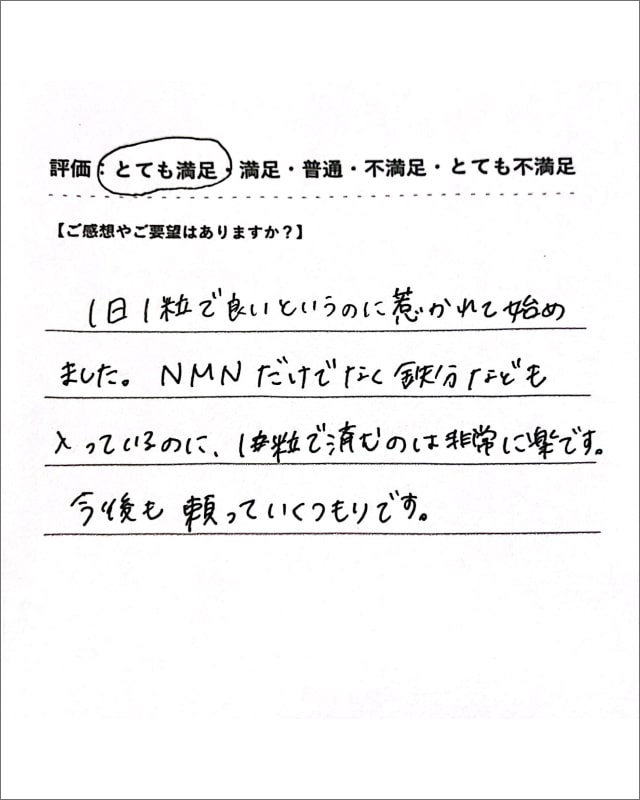 評価：とても満足・満足・普通・不満足・とても不満足
【ご感想やご要望はありますか？】
1日1粒で良いというのに惹かれて始め
ました。NMNだけでなく鉄分なども
入っているのに、1粒で済むのは非常に楽です。
今後も頼っていくつもりです。